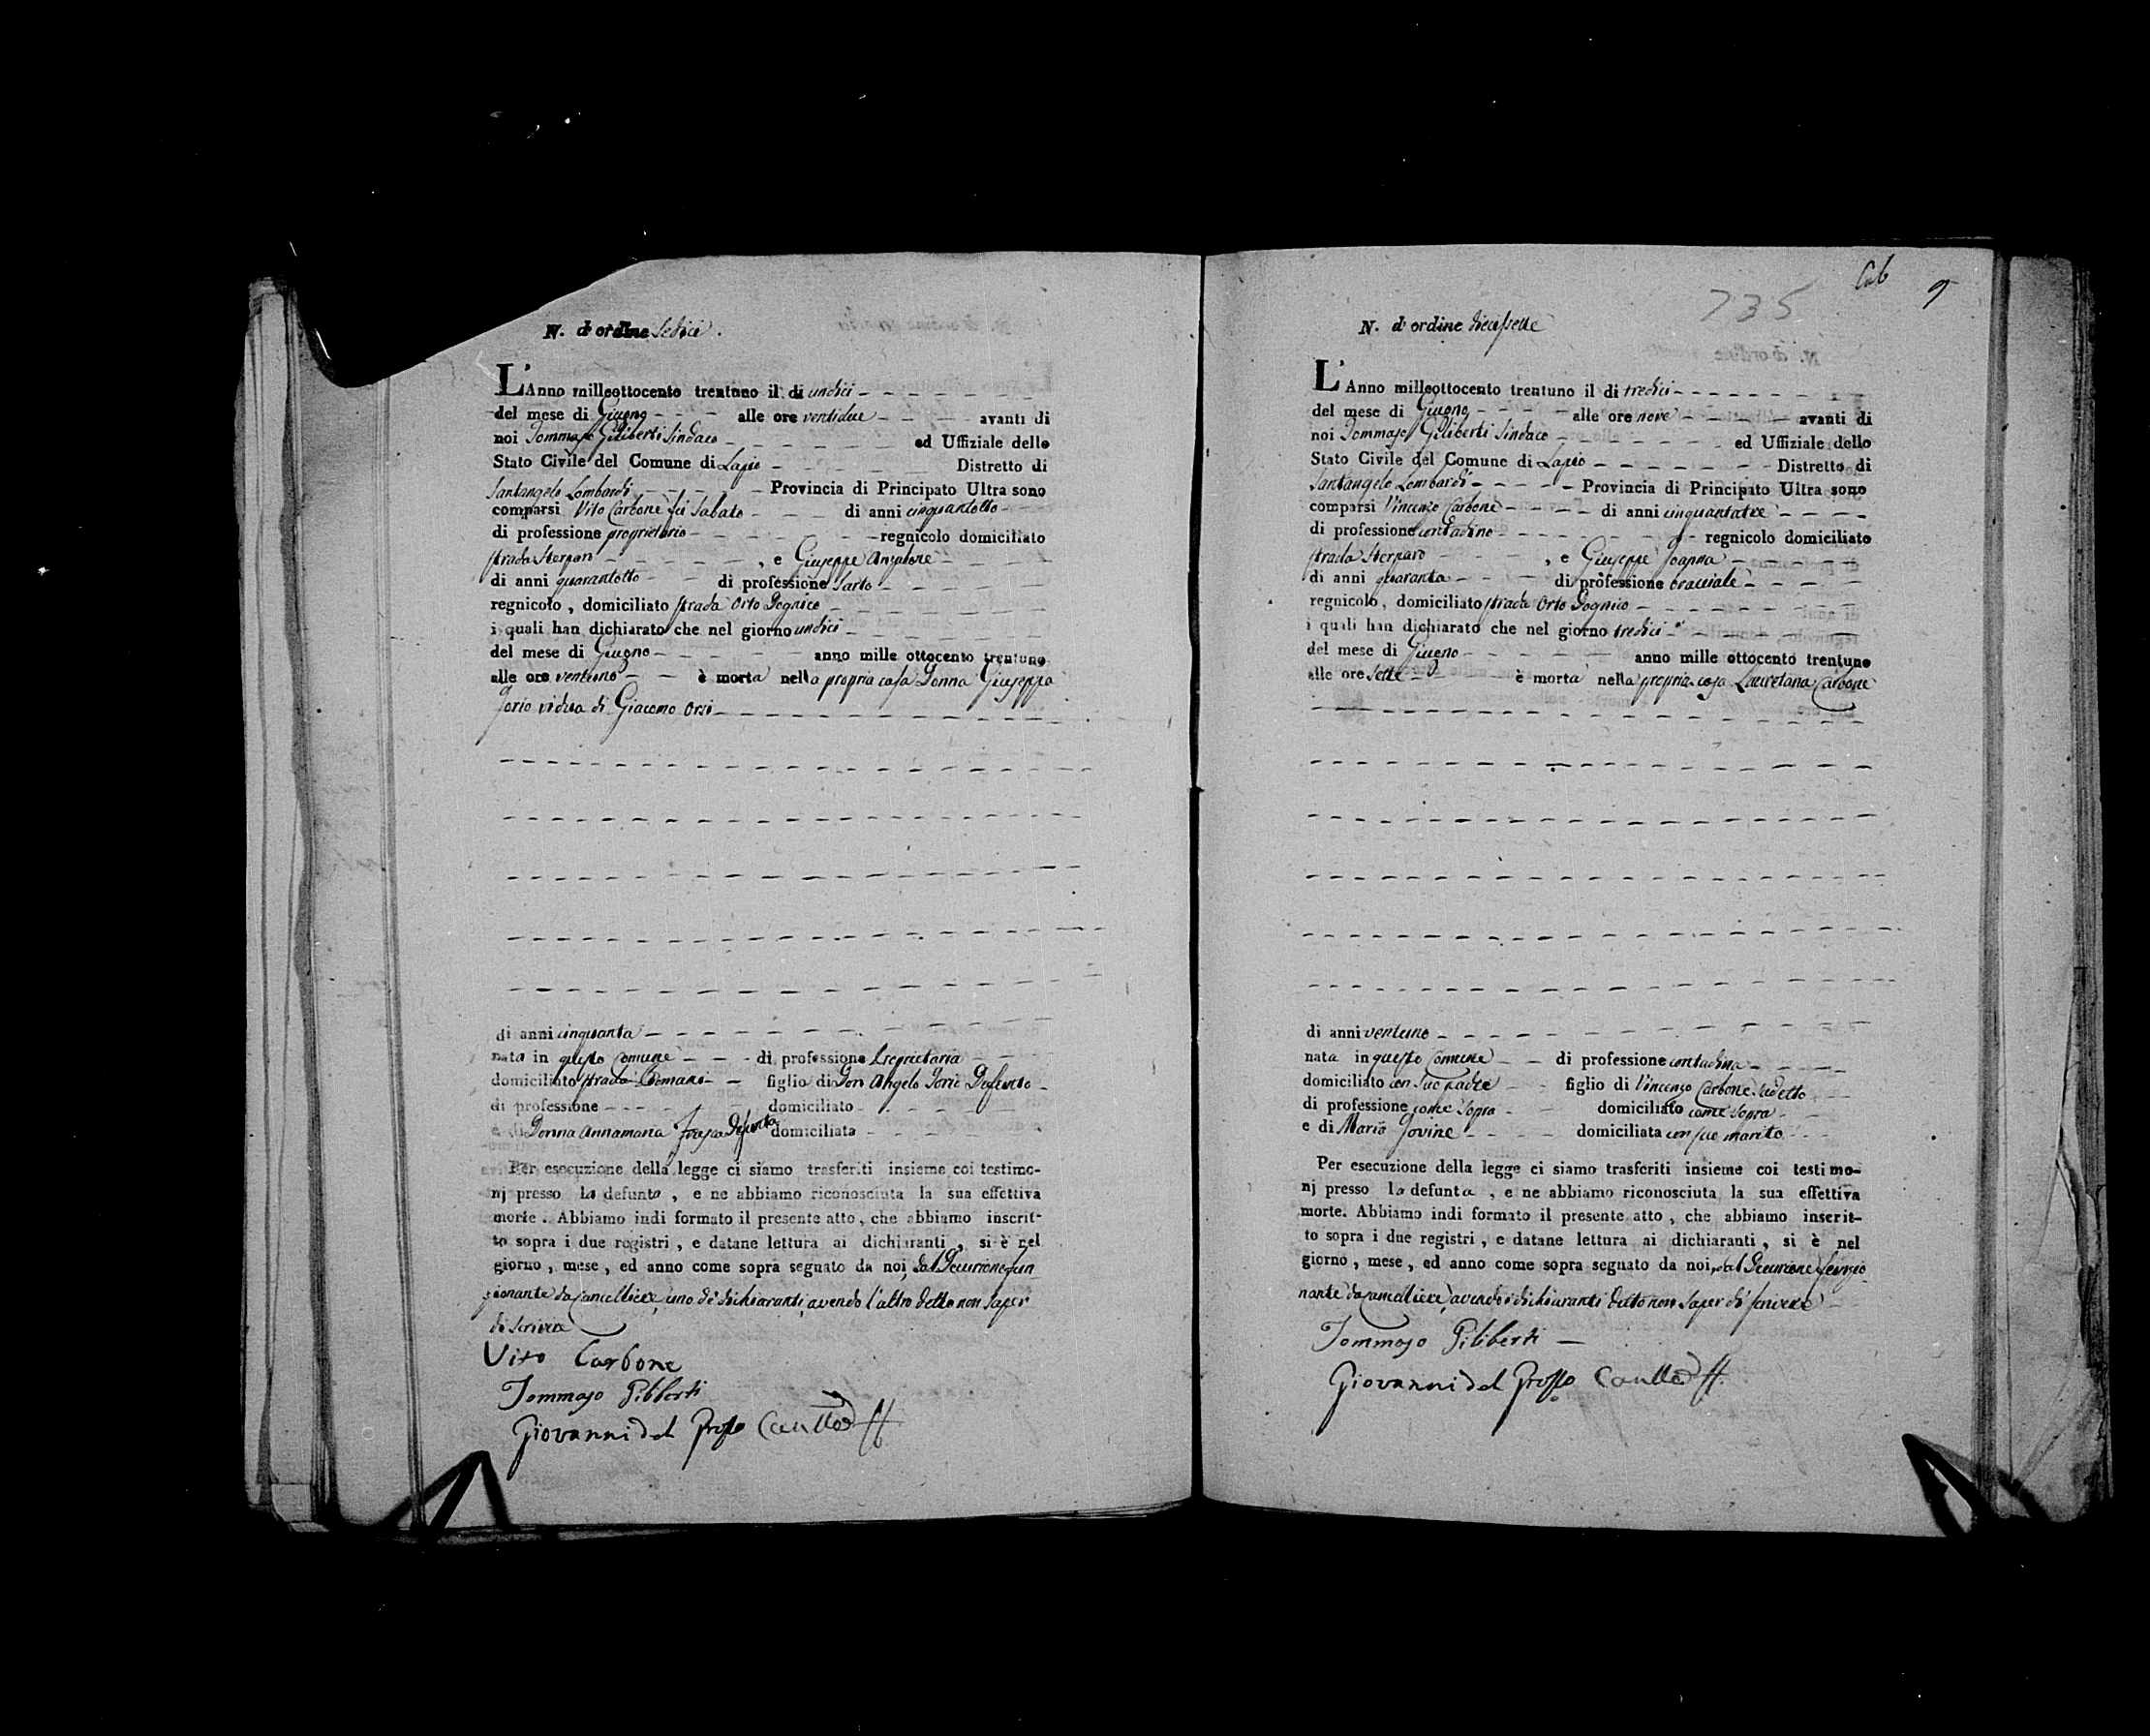 N. d'ordine Sedici.
L'Anno milleottocento trentuno il di undici
del mese di Giugno alle ore ventidue avanti di
noi Tommaso Giliberti Sindaco ed Uffiziale dello
Stato Civile del Comune di Lapio Distretto di
Santangelo Lombardi Provincia di Principato Ultra sono
comparsi Vito Carbone fu Sabato di anni cinquantotto
di professione proprietario regnicolo domiciliato
strada , e Giuseppe Anzalone
di anni quarantotto di professione Sarto
regnicolo, domiciliato strada Orto
i quali han dichiarato che nel giorno undici
del mese di Giugno anno mille ottocento trentuno
alle ore ventuno è morta nella propria casa Donna Giuseppa
Iorio vidua di Giacomo Orsi
di anni cinquanta
nata in questo Comune di professione Proprietaria
domiciliato strada figlio di Don Angelo Iorio Defunto
di professione domiciliato
e di Donna Annamaria Defunta domiciliata
Per esecuzione della legge ci siamo trasferiti insieme coi testimo-
nj presso la defunta, e ne abbiamo riconosciuta la sua effettiva
morte. Abbiamo indi formato il presente atto, che abbiamo inscrit-
to sopra i due registri, e datane lettura ai dichiaranti, si è nel
giorno, mese, ed anno come sopra segnato da noi, dal Decurione fun
zionante da Cancelliere, uno de' dichiaranti, avendo l'altro detto non saper
di scrivere
Vito Carbone
Tommaso Giliberti
Giovanni del Grosso
Cab 9
735
N. d'ordine diecessette
L'Anno milleottocento trentuno il di tredici
del mese di Giugno alle ore nove avanti di
noi Tommaso Giliberti Sindaco ed Uffiziale dello
Stato Civile del Comune di Lapio Distretto di
Santangelo Lombardi Provincia di Principato Ultra sono
comparsi Vincenzo Carbone di anni cinquantatre
di professione contadino regnicolo domiciliato
strada , e Giuseppe Ioanna
di anni quaranta di professione bracciale
regnicolo, domiciliato strada Orto
i quali han dichiarato che nel giorno tredici
del mese di Giugno anno mille ottocento trentuno
alle ore sette è morta nella propria casa Lauretana Carbone
di anni ventuno
nata in questo Comune di professione contadina
domiciliato con suo padre figlio di Vincenzo Carbone sudetto
di professione come sopra domiciliato come sopra
e di Maria Iovine domiciliata con suo marito
Per esecuzione della legge ci siamo trasferiti insieme coi testimo-
nj presso la defunta, e ne abbiamo riconosciuta la sua effettiva
morte. Abbiamo indi formato il presente atto, che abbiamo inscrit-
to sopra i due registri, e datane lettura ai dichiaranti, si è nel
giorno, mese, ed anno come sopra segnato da noi, dal Decurione funzio
nante da Cancelliere, avendo i dichiaranti detto non saper di scrivere
Tommaso Giliberti
Giovanni del Grosso